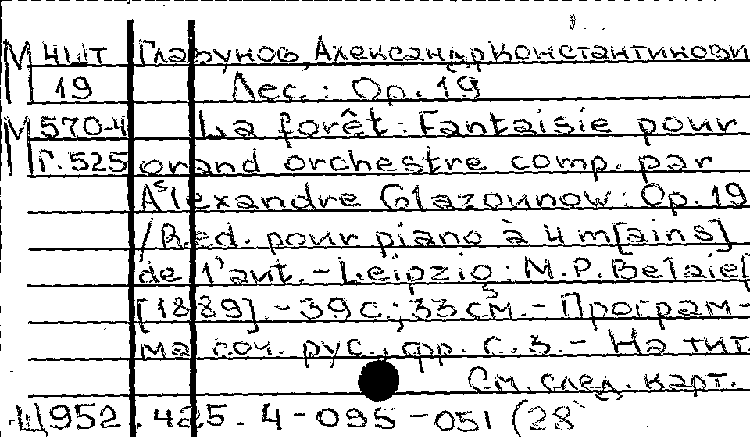 М ЧШТ Глазунов, Александр Константинови
19 Лес. : Op. 19
М 570-4 La forêt : Fantaisie pour
Г. 525 grand orchestre comp. par
Alexandre Glazounow : Op. 19
/ Red. pour piano à 4 m[ains]
de l'aut. - Leipzig : M. P. Belaief[
[1889]. - 39 с. ; 33 см. - Програм-
ма соч. рус., фр. с. 3. - На тит.
См. след. карт.
Ц 952. 425. 4-095-051 (28